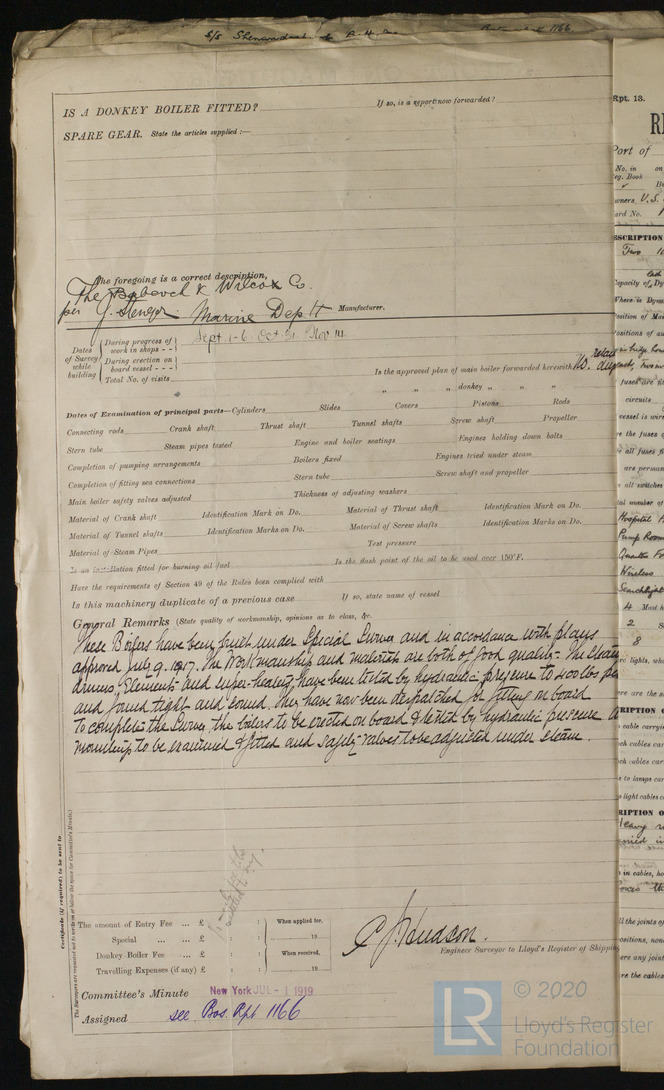 S/S Shenandoah
1166
IS A DONKEY BOILER FITTED?
If so, is a report now forwarded?
SPARE GEAR. State the articles supplied :—
The foregoing is a correct description,
The Babcock & Wilcox Co.
per Marine Dept Manufacturer.
Dates of Survey while building
During progress of work in shops - - Sept 1-6. Oct Nov
During erection on board vessel - - -
Total No. of visits
Is the approved plan of main boiler forwarded herewith No.
" " " donkey " " "
Dates of Examination of principal parts—Cylinders Slides Covers Pistons Rods
Connecting rods Crank shaft Thrust shaft Tunnel shafts Screw shaft Propeller
Stern tube Steam pipes tested Engine and boiler seatings Engines holding down bolts
Completion of pumping arrangements Boilers fixed Engines tried under steam
Completion of fitting sea connections Stern tube Screw shaft and propeller
Main boiler safety valves adjusted Thickness of adjusting washers
Material of Crank shaft Identification Mark on Do. Material of Thrust shaft Identification Mark on Do.
Material of Tunnel shafts Identification Marks on Do. Material of Screw shafts Identification Marks on Do.
Material of Steam Pipes Test pressure
Is an installation fitted for burning oil fuel Is the flash point of the oil to be used over 150°F.
Have the requirements of Section 49 of the Rules been complied with
Is this machinery duplicate of a previous case If so, state name of vessel
General Remarks (State quality of workmanship, opinions as to class, &c.
These Boilers have been built under Special Survey and in accordance with plans
approved July 9. 1917. The Workmanship and materials are both of good quality. The Steam
drums, Elements and super-heaters have been tested by hydraulic pressure to 400 lbs per
and found tight and sound. They have now been despatched for fitting on board
to complete the Survey, the boilers to be erected on board & tested by hydraulic pressure
mountings to be examined & fitted and safety valves to be adjusted under steam.
Certificate (if required) to be sent to
The Surveyors are requested not to write on or below the space for Committee's Minute.
The amount of Entry Fee ... £ : : When applied for,
Special ... ... £ : : 19
Donkey Boiler Fee ... £ : : When received,
Travelling Expenses (if any) £ : : 19
Hudson.
Engineer Surveyor to Lloyd's Register of Shipping
Committee's Minute New York JUL - 1 1919
Assigned see Bos. Rpt 1166
Rpt. 13.
Port of
No. in
Reg. Book
U.S.
Two
Wireless
Searchlight
4
2
8
LR
© 2020
Lloyd's Register
Foundation